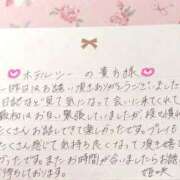 ホテルツーの貴方様
昨日はお誘い頂きありがとうございました
日記など見て気になって会いに来てくれて
最初はお互い緊張していましたが、段々慣れ
たくさんお話しできて楽しかったです。プレイも
たくさん感じて気持ち良くなって頂けて良
かったです。またお時間が合いましたらお誘い
お待ちしております。